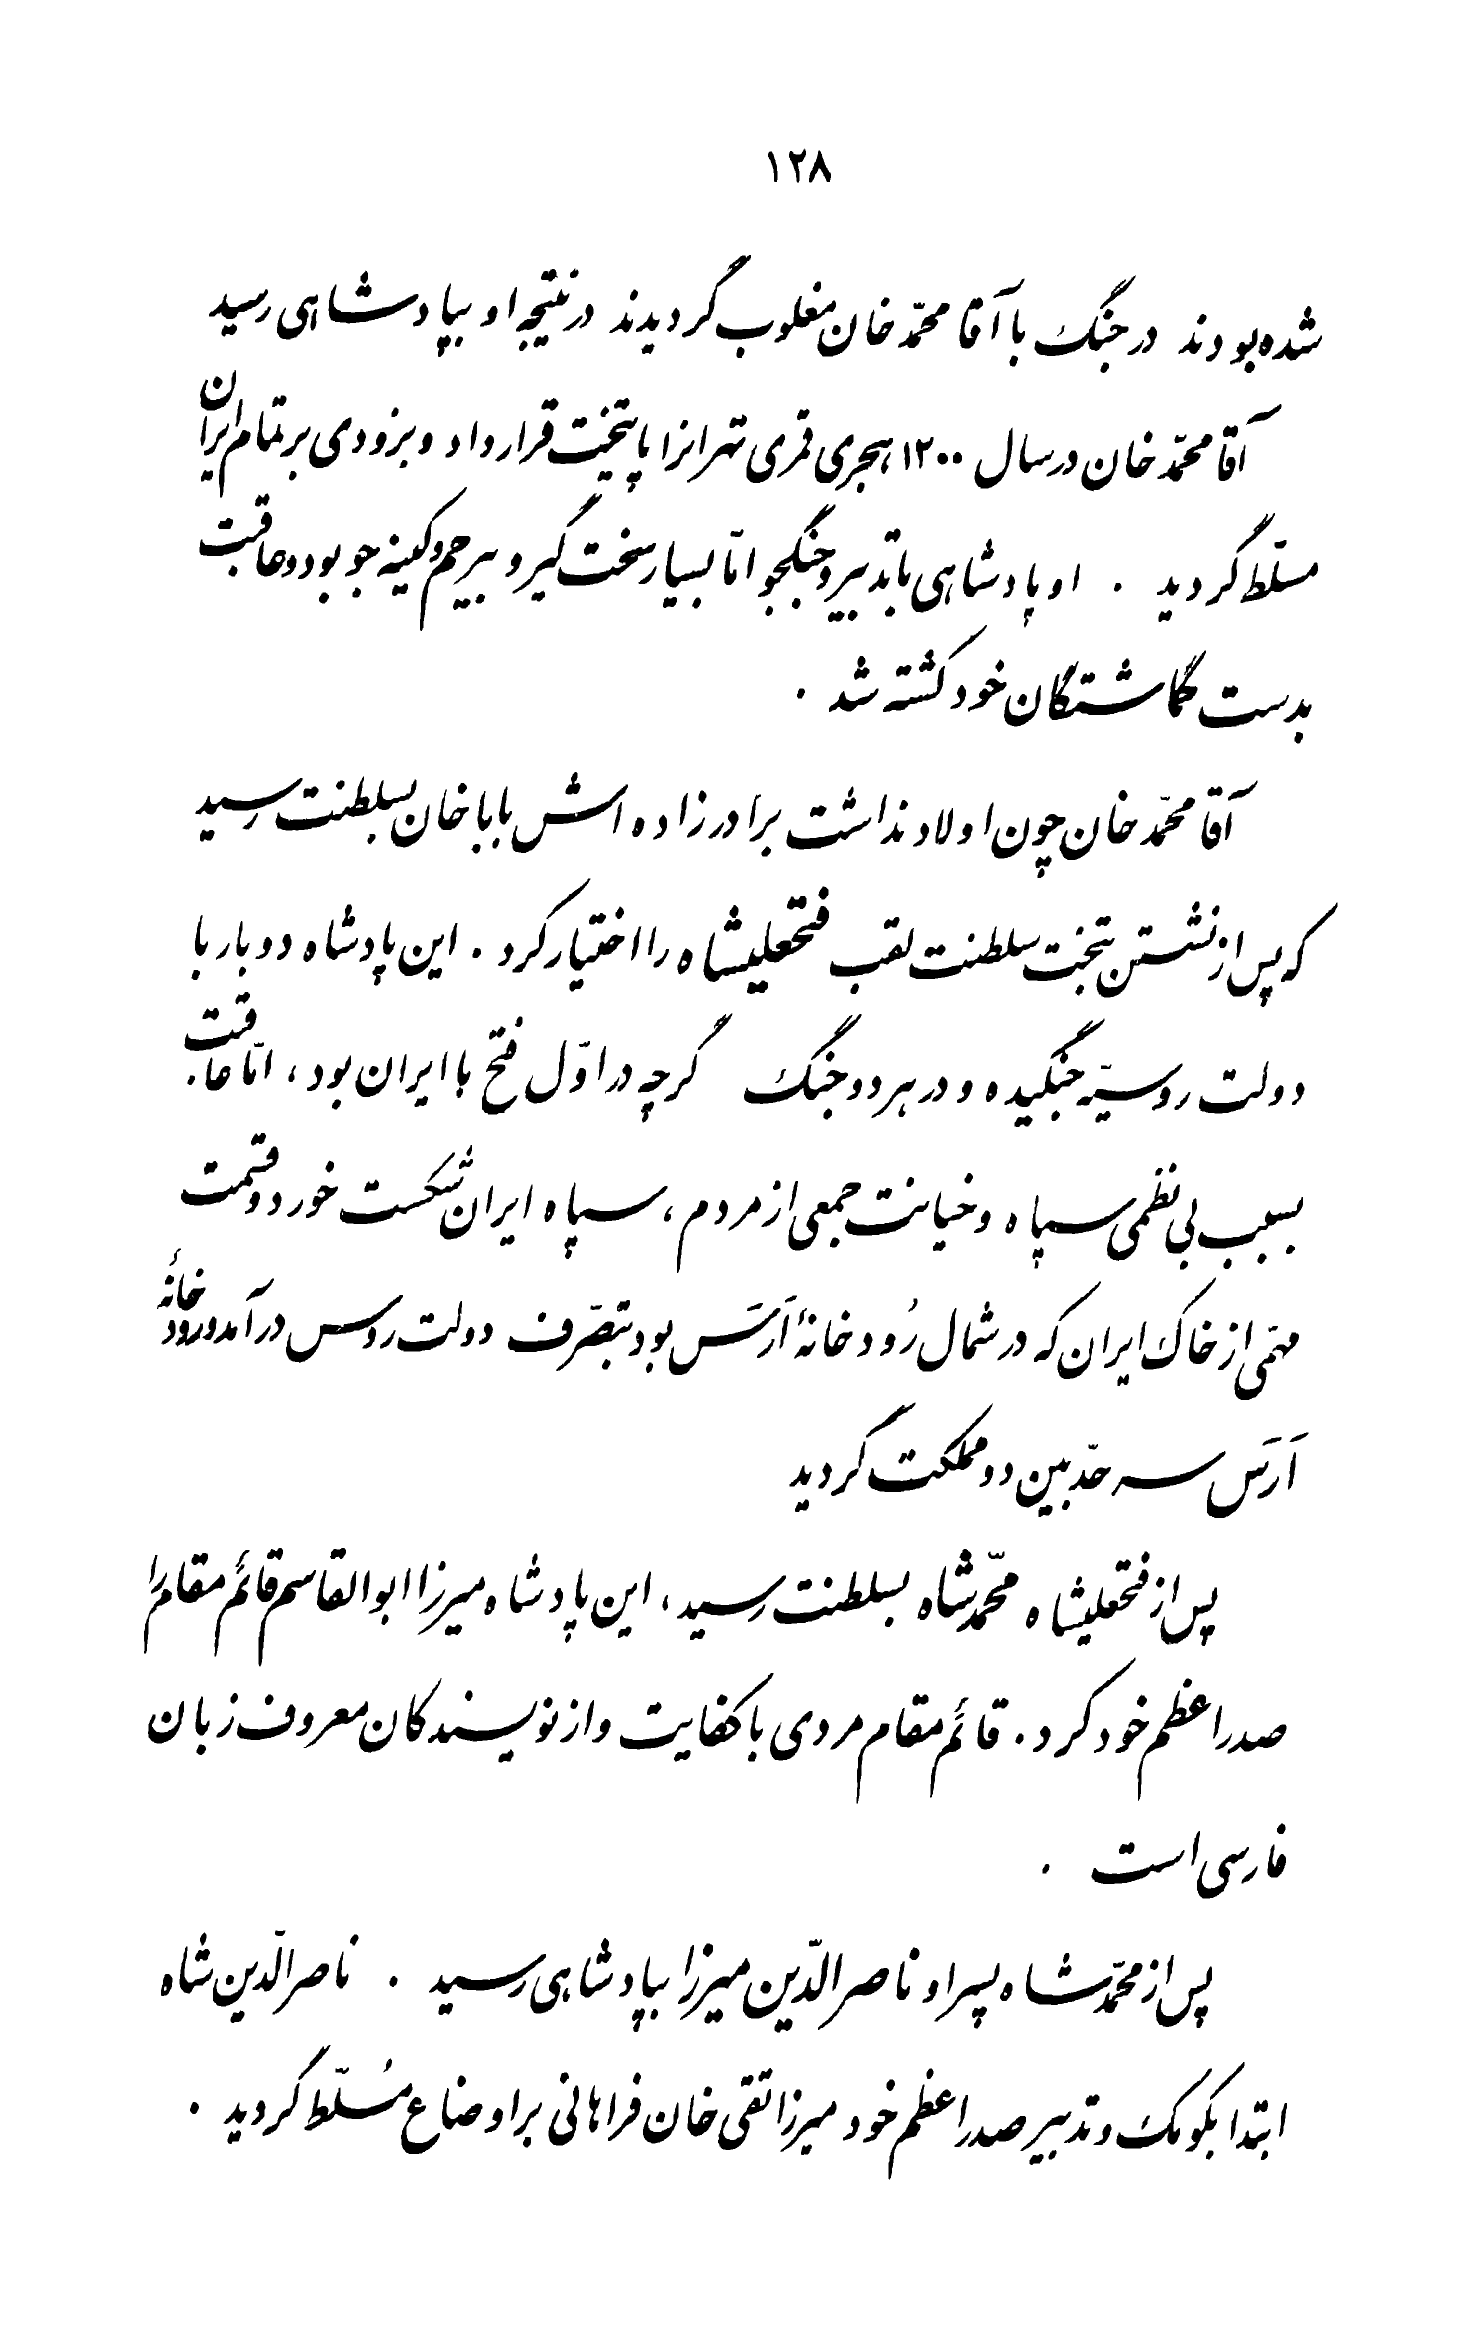 ۱۲۸
شده بودند در جنگ با آقا محمّد خان مغلوب گردیدند در نتیجه او بپادشاهی رسید
آقا محمّد خان در سال ۱۲۰۰ هجری قمری تهرانرا پایتخت قرار داد و بزودی بر تمام ایران
مسلّط گردید . او پادشاهی با تدبیر و جنگجو امّا بسیار سخت گیر و بیرحم و کینه جو بود و عاقبت
بدست گماشتگان خود کشته شد .
آقا محمّد خان چون اولاد نداشت برادرزاده اش بابا خان بسلطنت رسید
که پس از نشستن بتخت سلطنت لقب فتحعلیشاه را اختیار کرد . این پادشاه دو بار با
دولت روسیّه جنگیده و در هر دو جنگ گرچه در اوّل فتح با ایران بود ، امّا عاقبت
بسبب بی نظمی سپاه و خیانت جمعی از مردم ، سپاه ایران شکست خورد و قسمت
مهمّی از خاک ایران که در شمال رُودخانهٔ اَرَس بود بتصرّف دولت روس درآمد و رودخانهٔ
اَرَس سرحدّ بین دو مملکت گردید
پس از فتحعلیشاه محمّد شاه بسلطنت رسید ، این پادشاه میرزا ابوالقاسم قائم مقام را
صدراعظم خود کرد . قائم مقام مردی با کفایت و از نویسندگان معروف زبان
فارسی است .
پس از محمّد شاه پسر او ناصرالدّین میرزا بپادشاهی رسید . ناصرالدّین شاه
ابتدا بکومک و تدبیر صدراعظم خود میرزا تقی خان فراهانی بر اوضاع مُسلّط گردید .